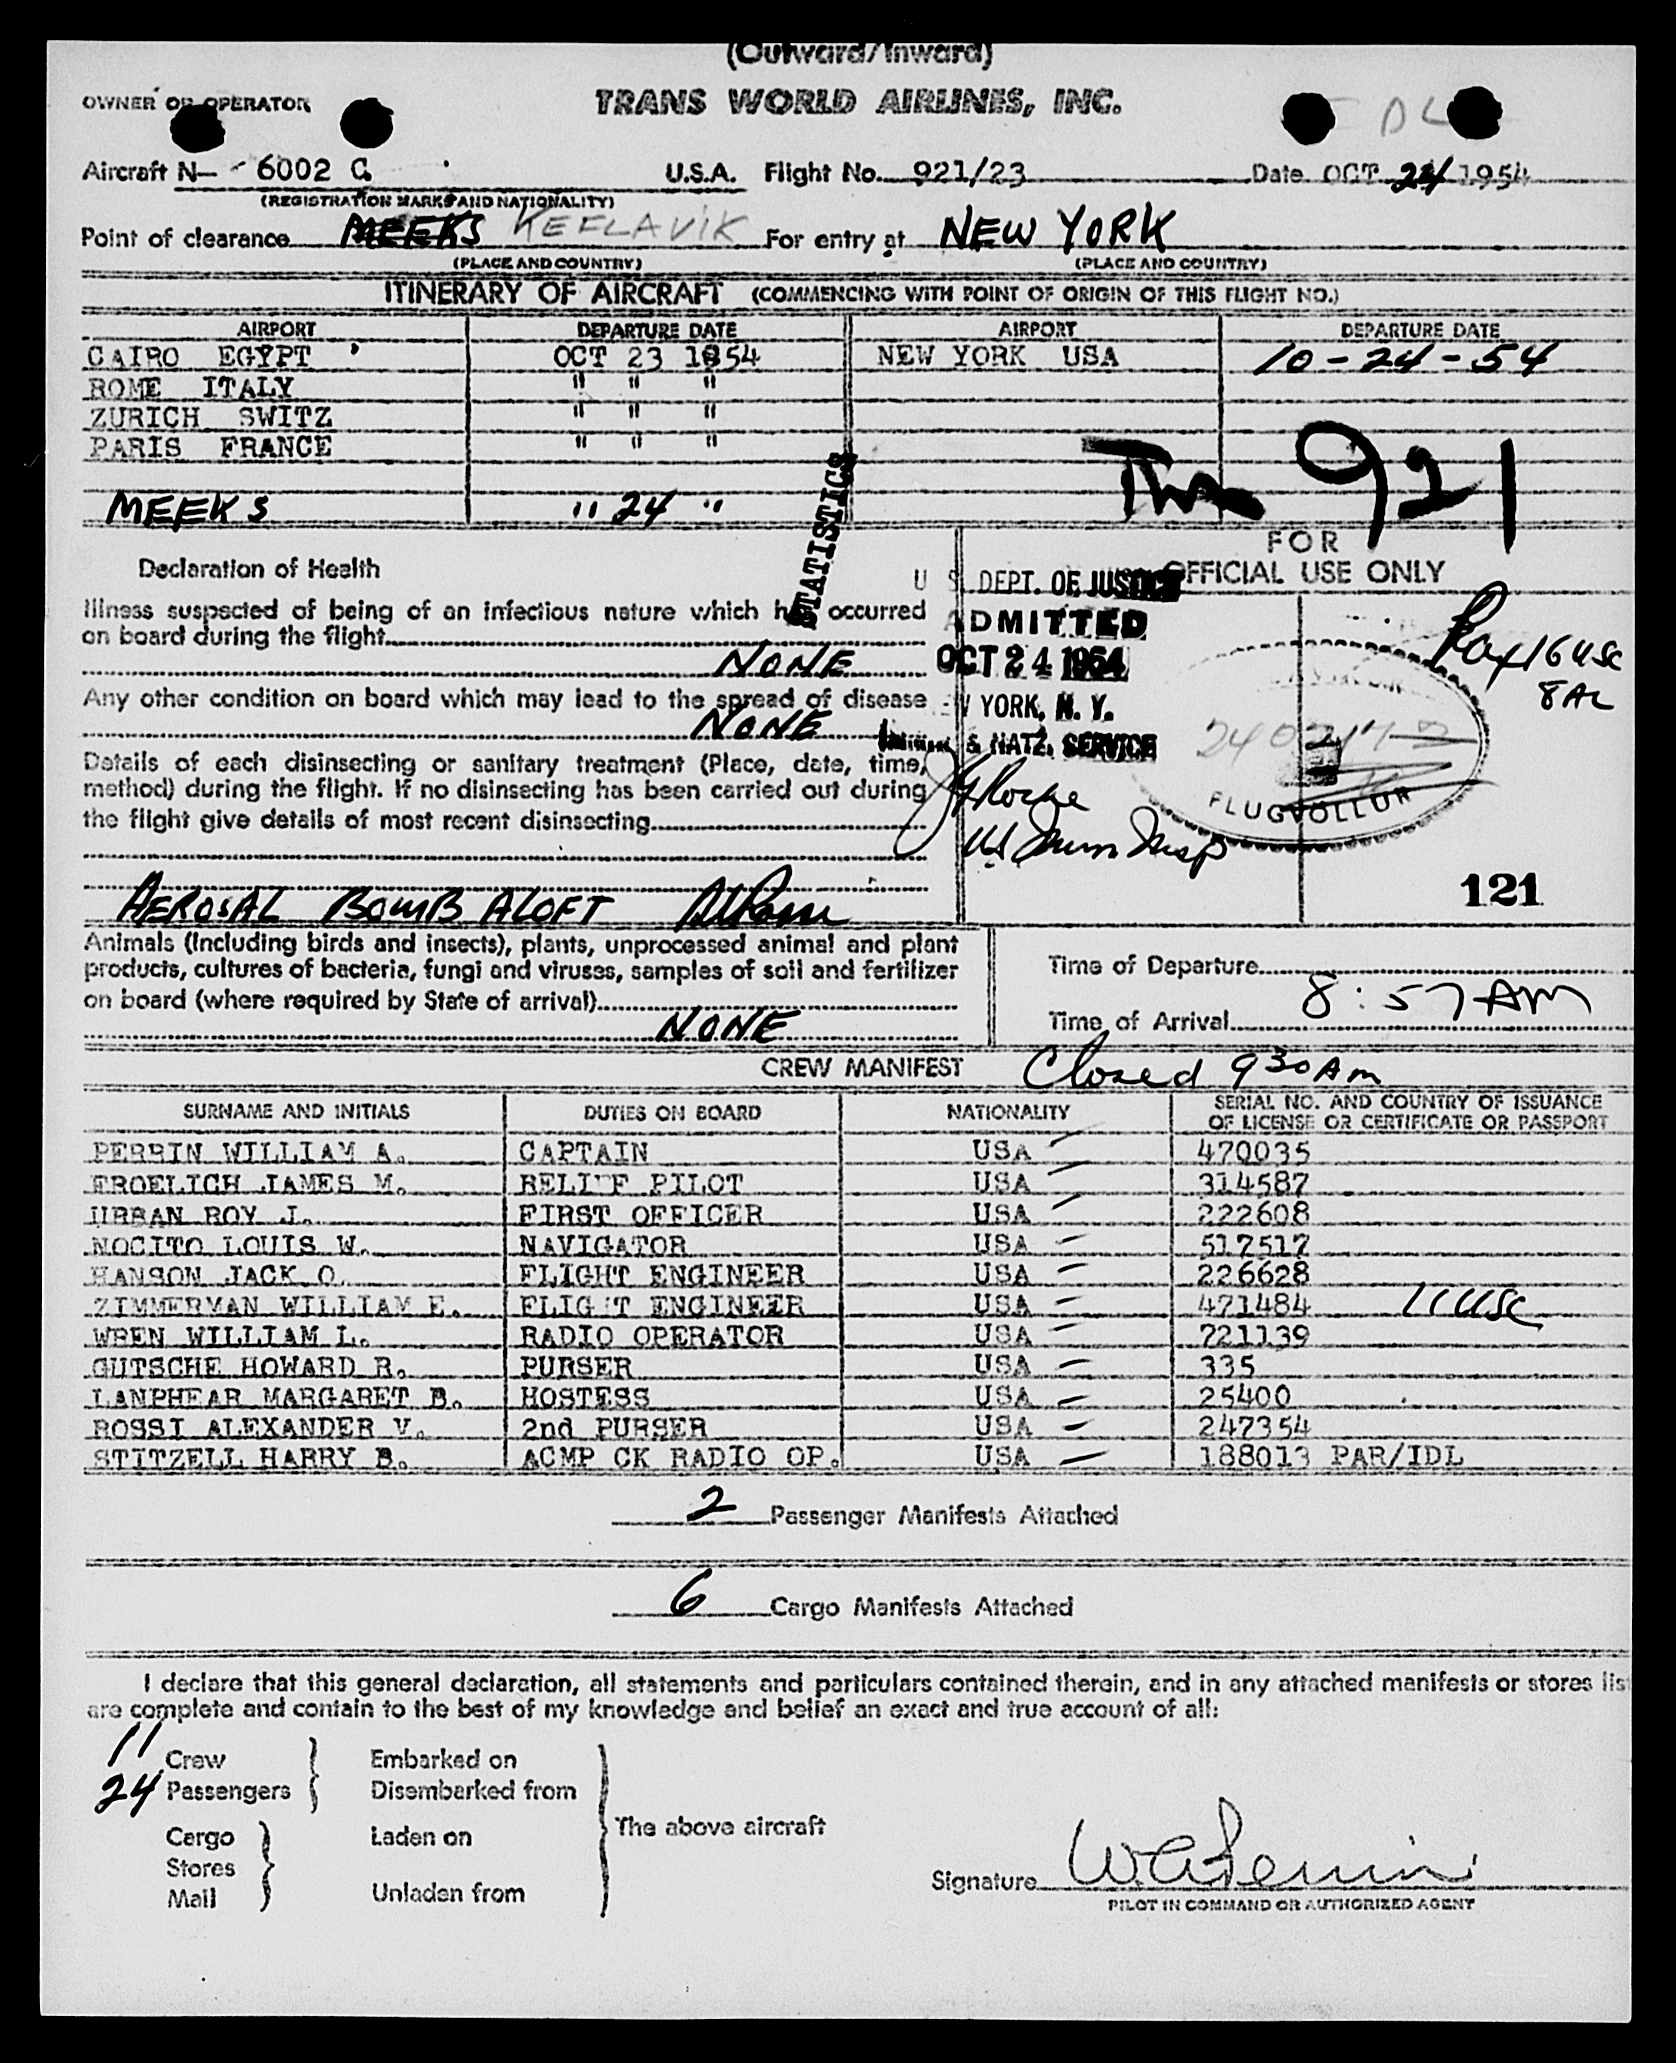 (Outward/Inward)
OWNER OR OPERATOR TRANS WORLD AIRLINES, INC.
Aircraft N- 6002 C U.S.A. Flight No. 921/23 Date OCT 24 1954
(REGISTRATION MARKS AND NATIONALITY)
Point of clearance MEEKS KEFLAVIK For entry at NEW YORK
(PLACE AND COUNTRY) (PLACE AND COUNTRY)
ITINERARY OF AIRCRAFT (COMMENCING WITH POINT OF ORIGIN OF THIS FLIGHT NO.)
AIRPORT DEPARTURE DATE AIRPORT DEPARTURE DATE
CAIRO EGYPT OCT 23 1954 NEW YORK USA 10-24-54
ROME ITALY " " "
ZURICH SWITZ " " "
PARIS FRANCE " " "
921
MEEKS " 24 "
STATISTICS
FOR
OFFICIAL USE ONLY
Declaration of Health
Illness suspected of being of an infectious nature which has occurred
on board during the flight
NONE
Any other condition on board which may lead to the spread of disease
NONE
Details of each disinsecting or sanitary treatment (Place, date, time,
method) during the flight. If no disinsecting has been carried out during
the flight give details of most recent disinsecting
AEROSAL BOMB ALOFT
U S DEPT. OF JUSTICE
ADMITTED
OCT 24 1954
YORK, N. Y.
& NATZ. SERVICE
Pax 16 USC
8 AL
FLUGVOLLUR
US Immn Insp
121
Animals (including birds and insects), plants, unprocessed animal and plant
products, cultures of bacteria, fungi and viruses, samples of soil and fertilizer
on board (where required by State of arrival)
NONE
Time of Departure
Time of Arrival 8:57 AM
CREW MANIFEST Closed 930 AM
SURNAME AND INITIALS DUTIES ON BOARD NATIONALITY SERIAL NO. AND COUNTRY OF ISSUANCE
OF LICENSE OR CERTIFICATE OR PASSPORT
PERRIN WILLIAM A. CAPTAIN USA 470035
FROELICH JAMES M. RELIEF PILOT USA 314587
URBAN ROY J. FIRST OFFICER USA 222608
NOCITO LOUIS W. NAVIGATOR USA 517517
HANSON JACK O. FLIGHT ENGINEER USA 226628
ZIMMERMAN WILLIAM E. FLIGHT ENGINEER USA 471484 11 USC
WREN WILLIAM L. RADIO OPERATOR USA 721139
GUTSCHE HOWARD R. PURSER USA 335
LANPHEAR MARGARET B. HOSTESS USA 25400
ROSSI ALEXANDER V. 2nd PURSER USA 247354
STITZELL HARRY B. ACMP CK RADIO OP. USA 188013 PAR/IDL
2 Passenger Manifests Attached
6 Cargo Manifests Attached
I declare that this general declaration, all statements and particulars contained therein, and in any attached manifests or stores lis
are complete and contain to the best of my knowledge and belief an exact and true account of all:
11 Crew Embarked on
24 Passengers Disembarked from
The above aircraft
Cargo Laden on
Stores
Mail Unladen from
Signature W A Perrin
PILOT IN COMMAND OR AUTHORIZED AGENT